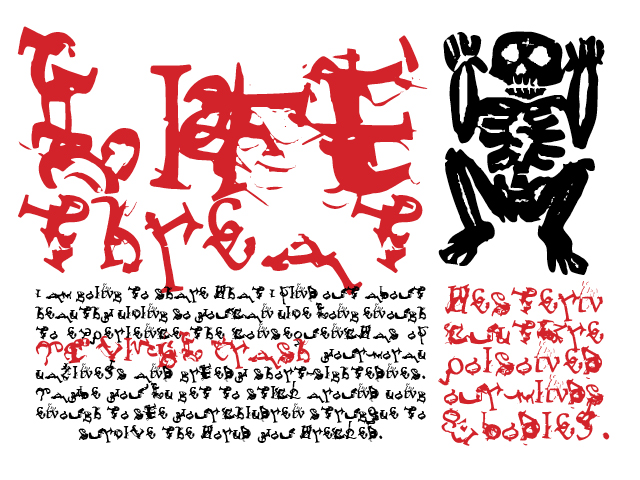 threat
I am going to share what I find out about
healthy living so you can live long enough
to experience the consequences of
your moral
and greedy short-sightedness.
Maybe you'll get to stick around long
enough to see your children struggle to
survive the world you wrecked.
Western
culture
poisoned
our minds
& bodies.